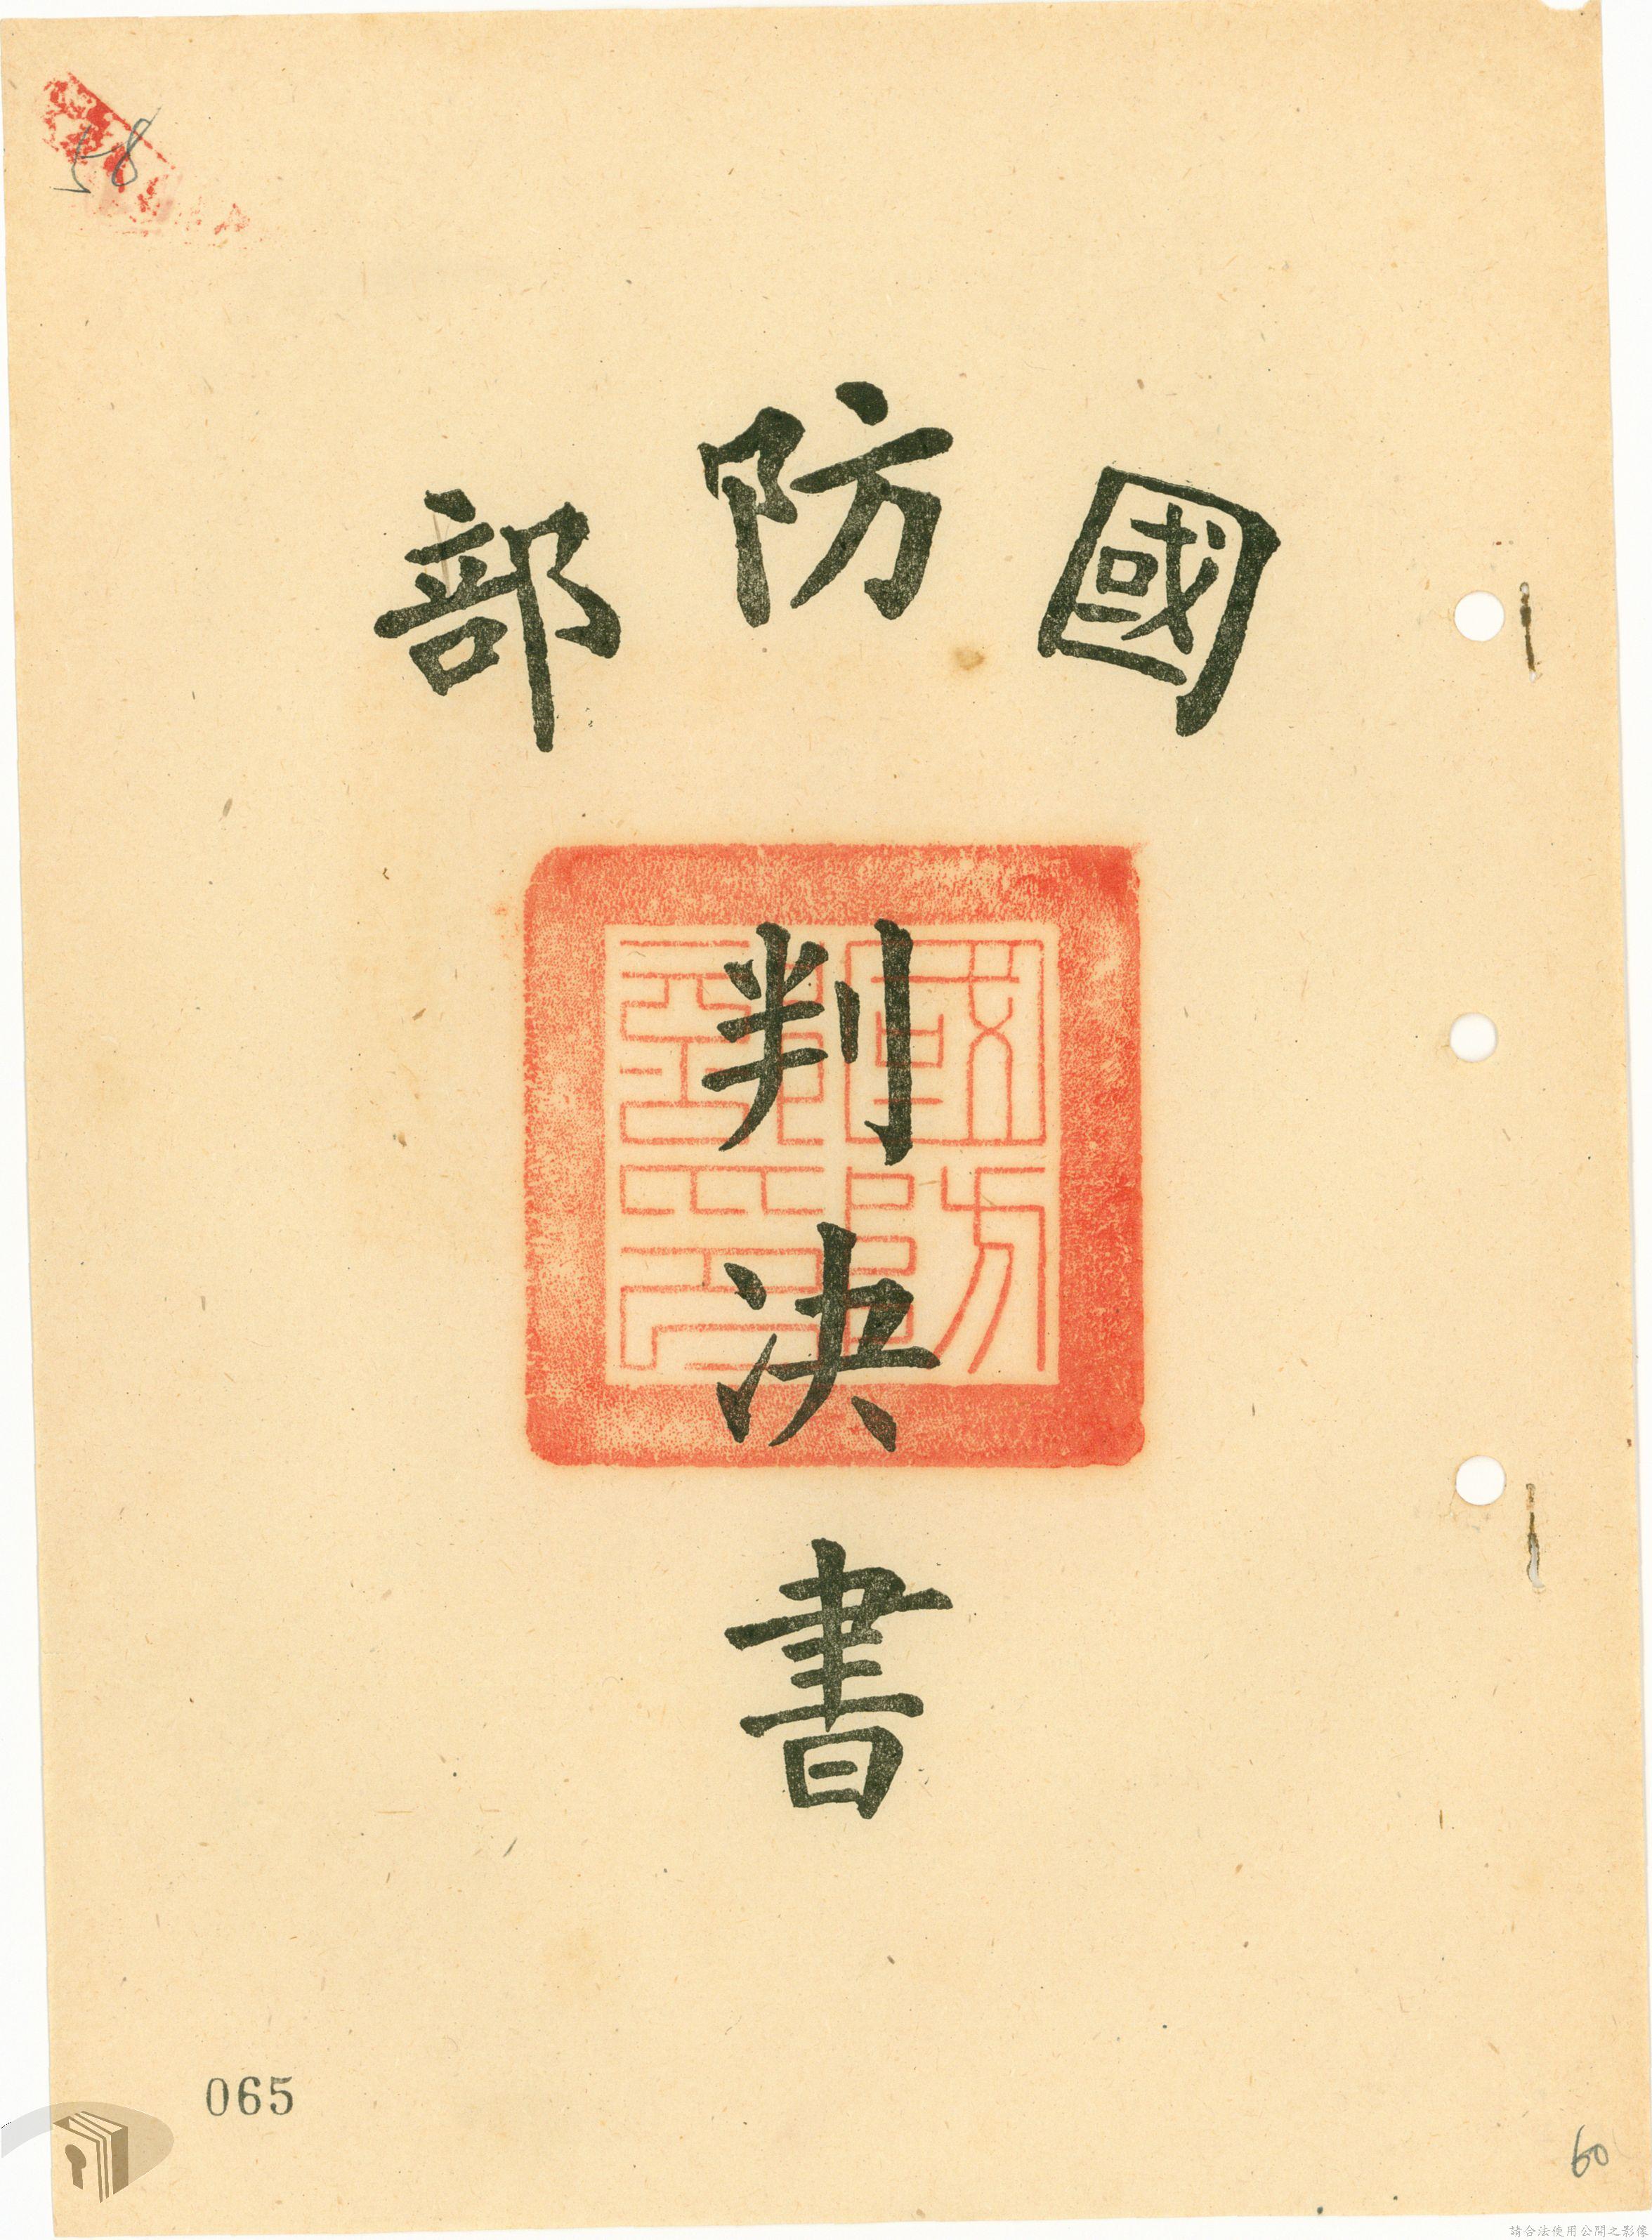 58
國防部
國防部印
判決書
065
60
請合法使用公開之影像